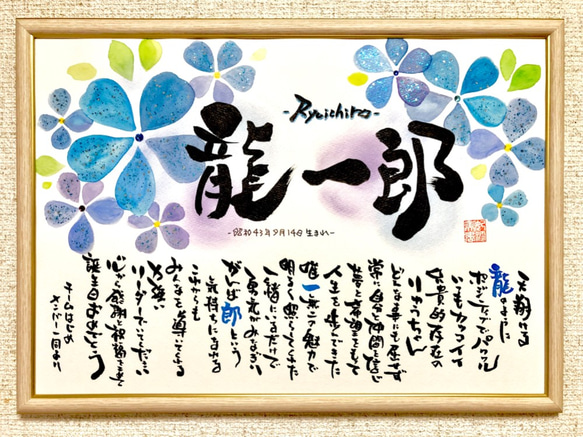 -Ryuichiro-
龍一郎
-昭和43年9月14日生まれ-
天翔ける
龍のように
ポジティブでパワフル
いつもカッコイイ
兄貴的存在の
りゅうちゃん
どんな事にも屈せず
常に自分と仲間を信じ
夢と希望をもって
人生を
唯一無二の魅力で
明るく照らしてくれた
一緒にいるだけで
元気がみなぎり
がんば郎という
気持ちになれる
これからも
みんなを導いてくれる
力強い
リーダーでいてください
心から感謝と祝福を込めて
誕生日おめでとう
チームはじめ
メンバー一同より